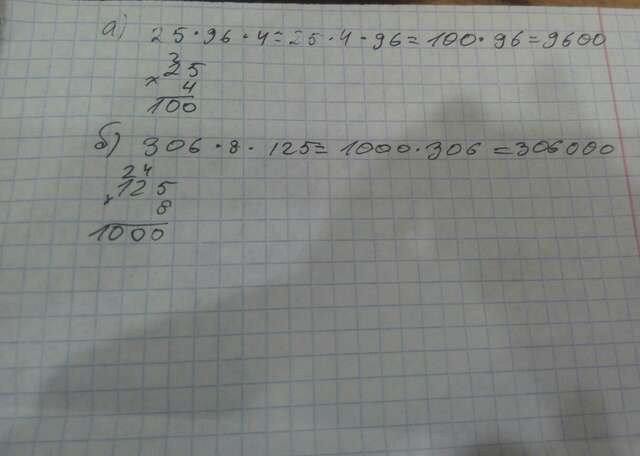 а) 25·96·4=25·4·96=100·96=9600
3
×25
4
100
б) 306·8·125=1000·306=306000
24
×125
8
1000